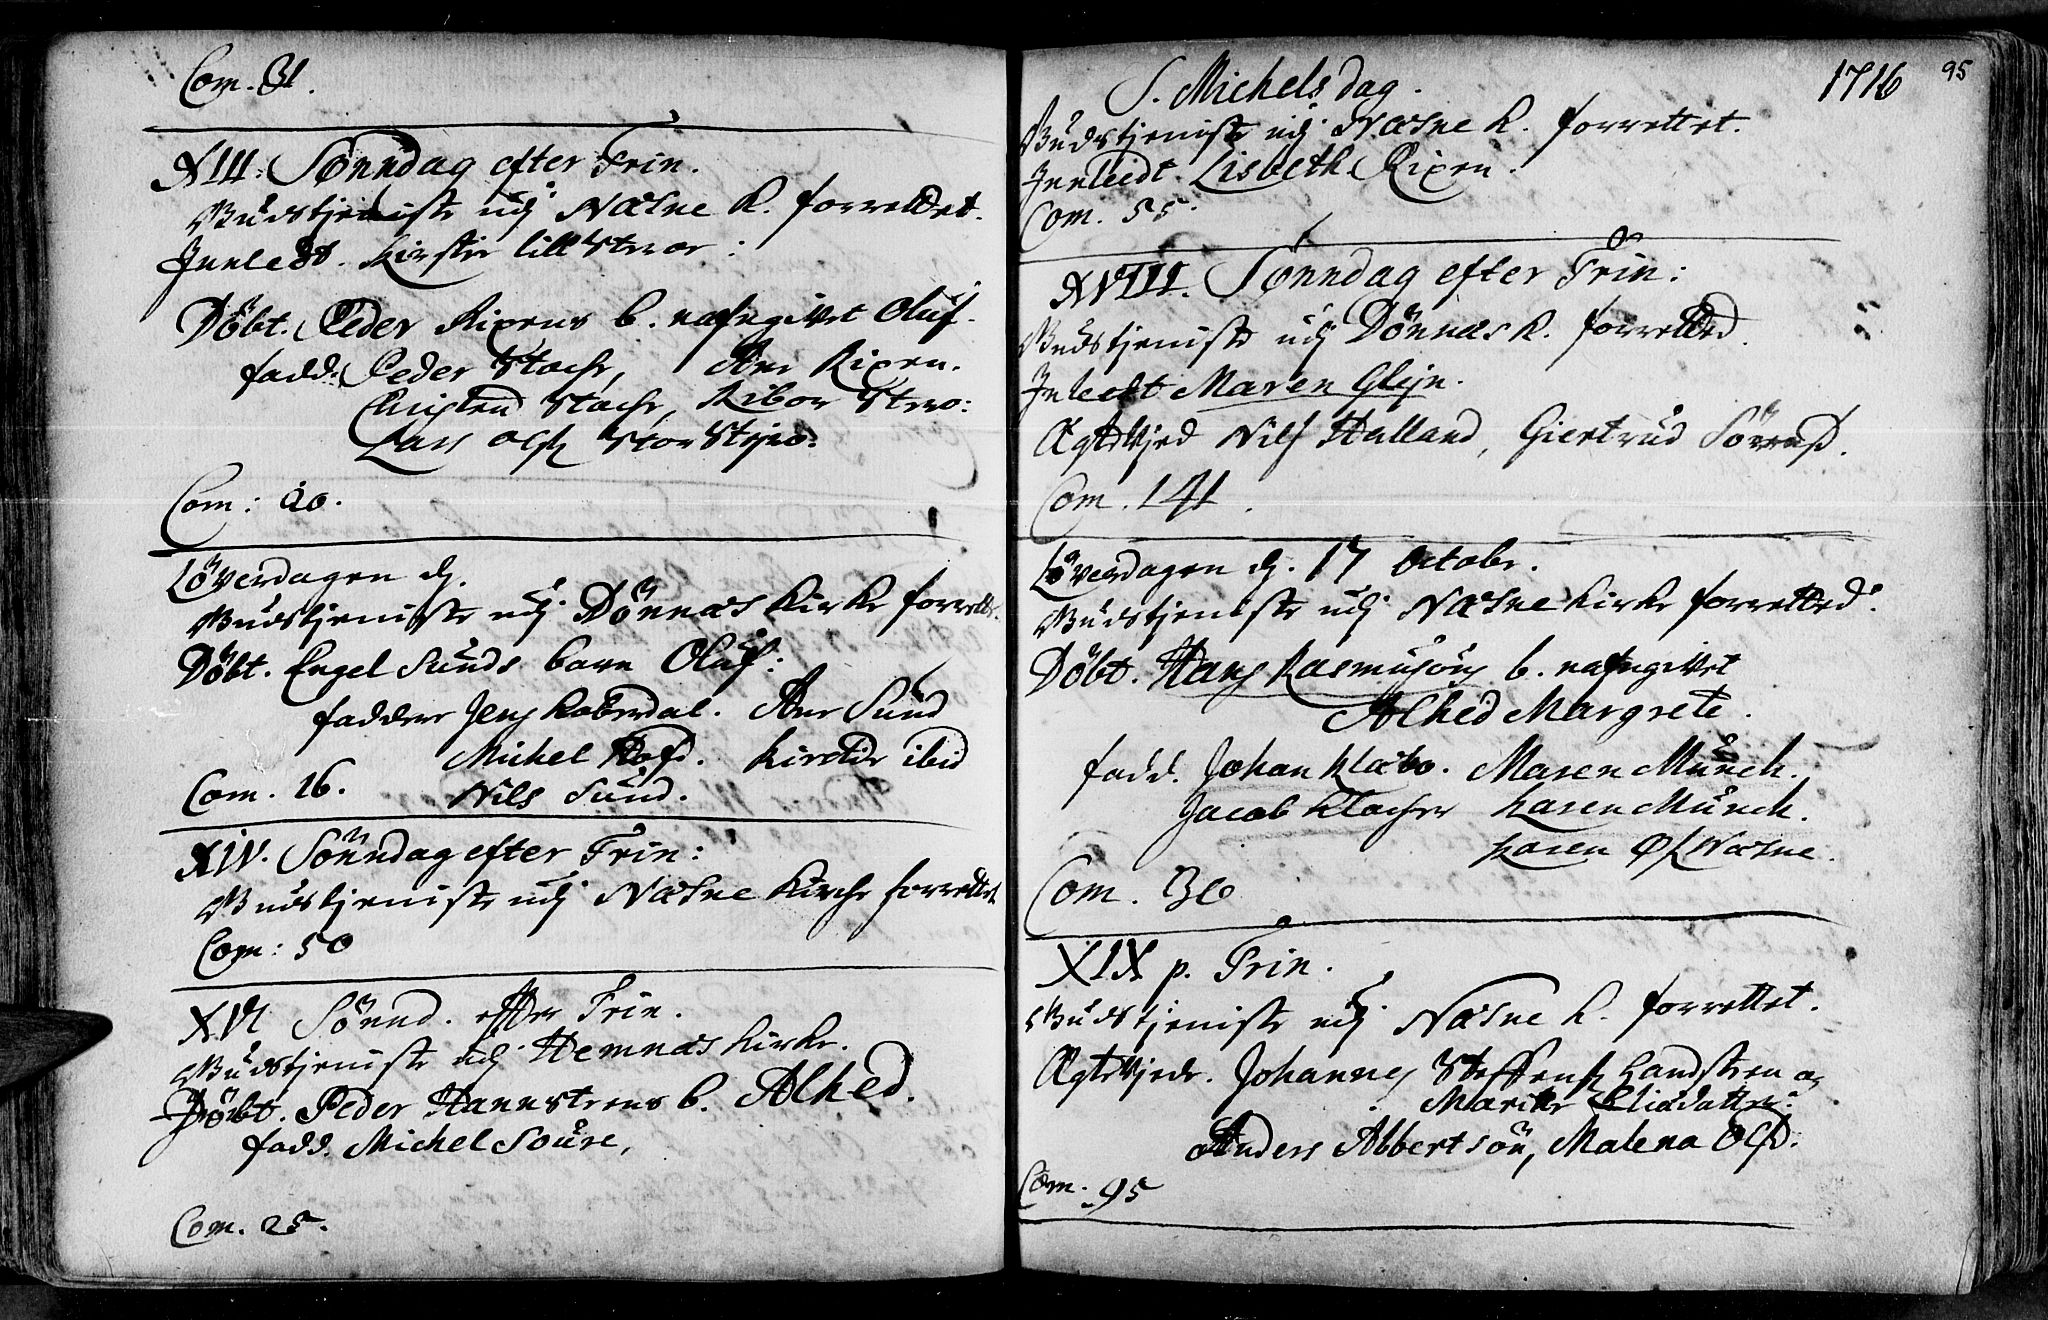 Com. 31.
XIII. Sönndag efter Trin.
Gudstjeniste udj Næsne K. forrettet.
Innledt. Kirstin lill Steroe:
Döbt. Peder Rixens b. nafngivet Oluf.
fadd. Peder Stachr, Ane Rixen.
Christen Stachr, Kibor
Lars Ols
Com: 20.
Löverdagen dj.
Gudstjeniste udj Dönnæs Kirke forrett.
Döbt. Engel Sunds barn Oluf:
faddere Jens Kaberdal. Ane Sund
Michel ibid
Com. 16. Nils Sund.
XIV. Sönndag efter Trin:
Gudstjeniste udj Næsne Kirche forrettet
Com: 50
XVI Sönnd. effter Trin.
Gudstjeniste udj Hemnæs Kirke.
Döbt. Peder Hannstreens b. Alhed.
fadd. Michel Soure,
Com. 25.
1716 95
S. Michels dag.
Gudstjeniste udj Næsne K. forrettet.
Innleedt. Lisbeth Rixen.
Com. 55.
XVIII. Sönndag efter Trin:
Gudstjeniste udj Dönnæs K. forretted.
Inleedt Maren Glejn.
Ægtevjed Nils Halland, Giertrud Sörensd.
Com. 141.
Löverdagen dj. 17 Octobr.
Gudstjeniste udj Næsne Kirke forretted.
Döbt. Hans Rasmusöns b. nafngivet
Alhed Margrete.
fadd. Johan Klæbo. Maren Munch.
Jacob Klacher Karen Munch.
Karen Næsne.
Com. 36
XIX p. Trin.
Gudstjeniste udj Næsne K. forrettet.
Ægtevjede. Johannes Steffens Handsteen og
Marite Eliædatter.
Anders Abbertsön, Malena Olsd.
Com. 95